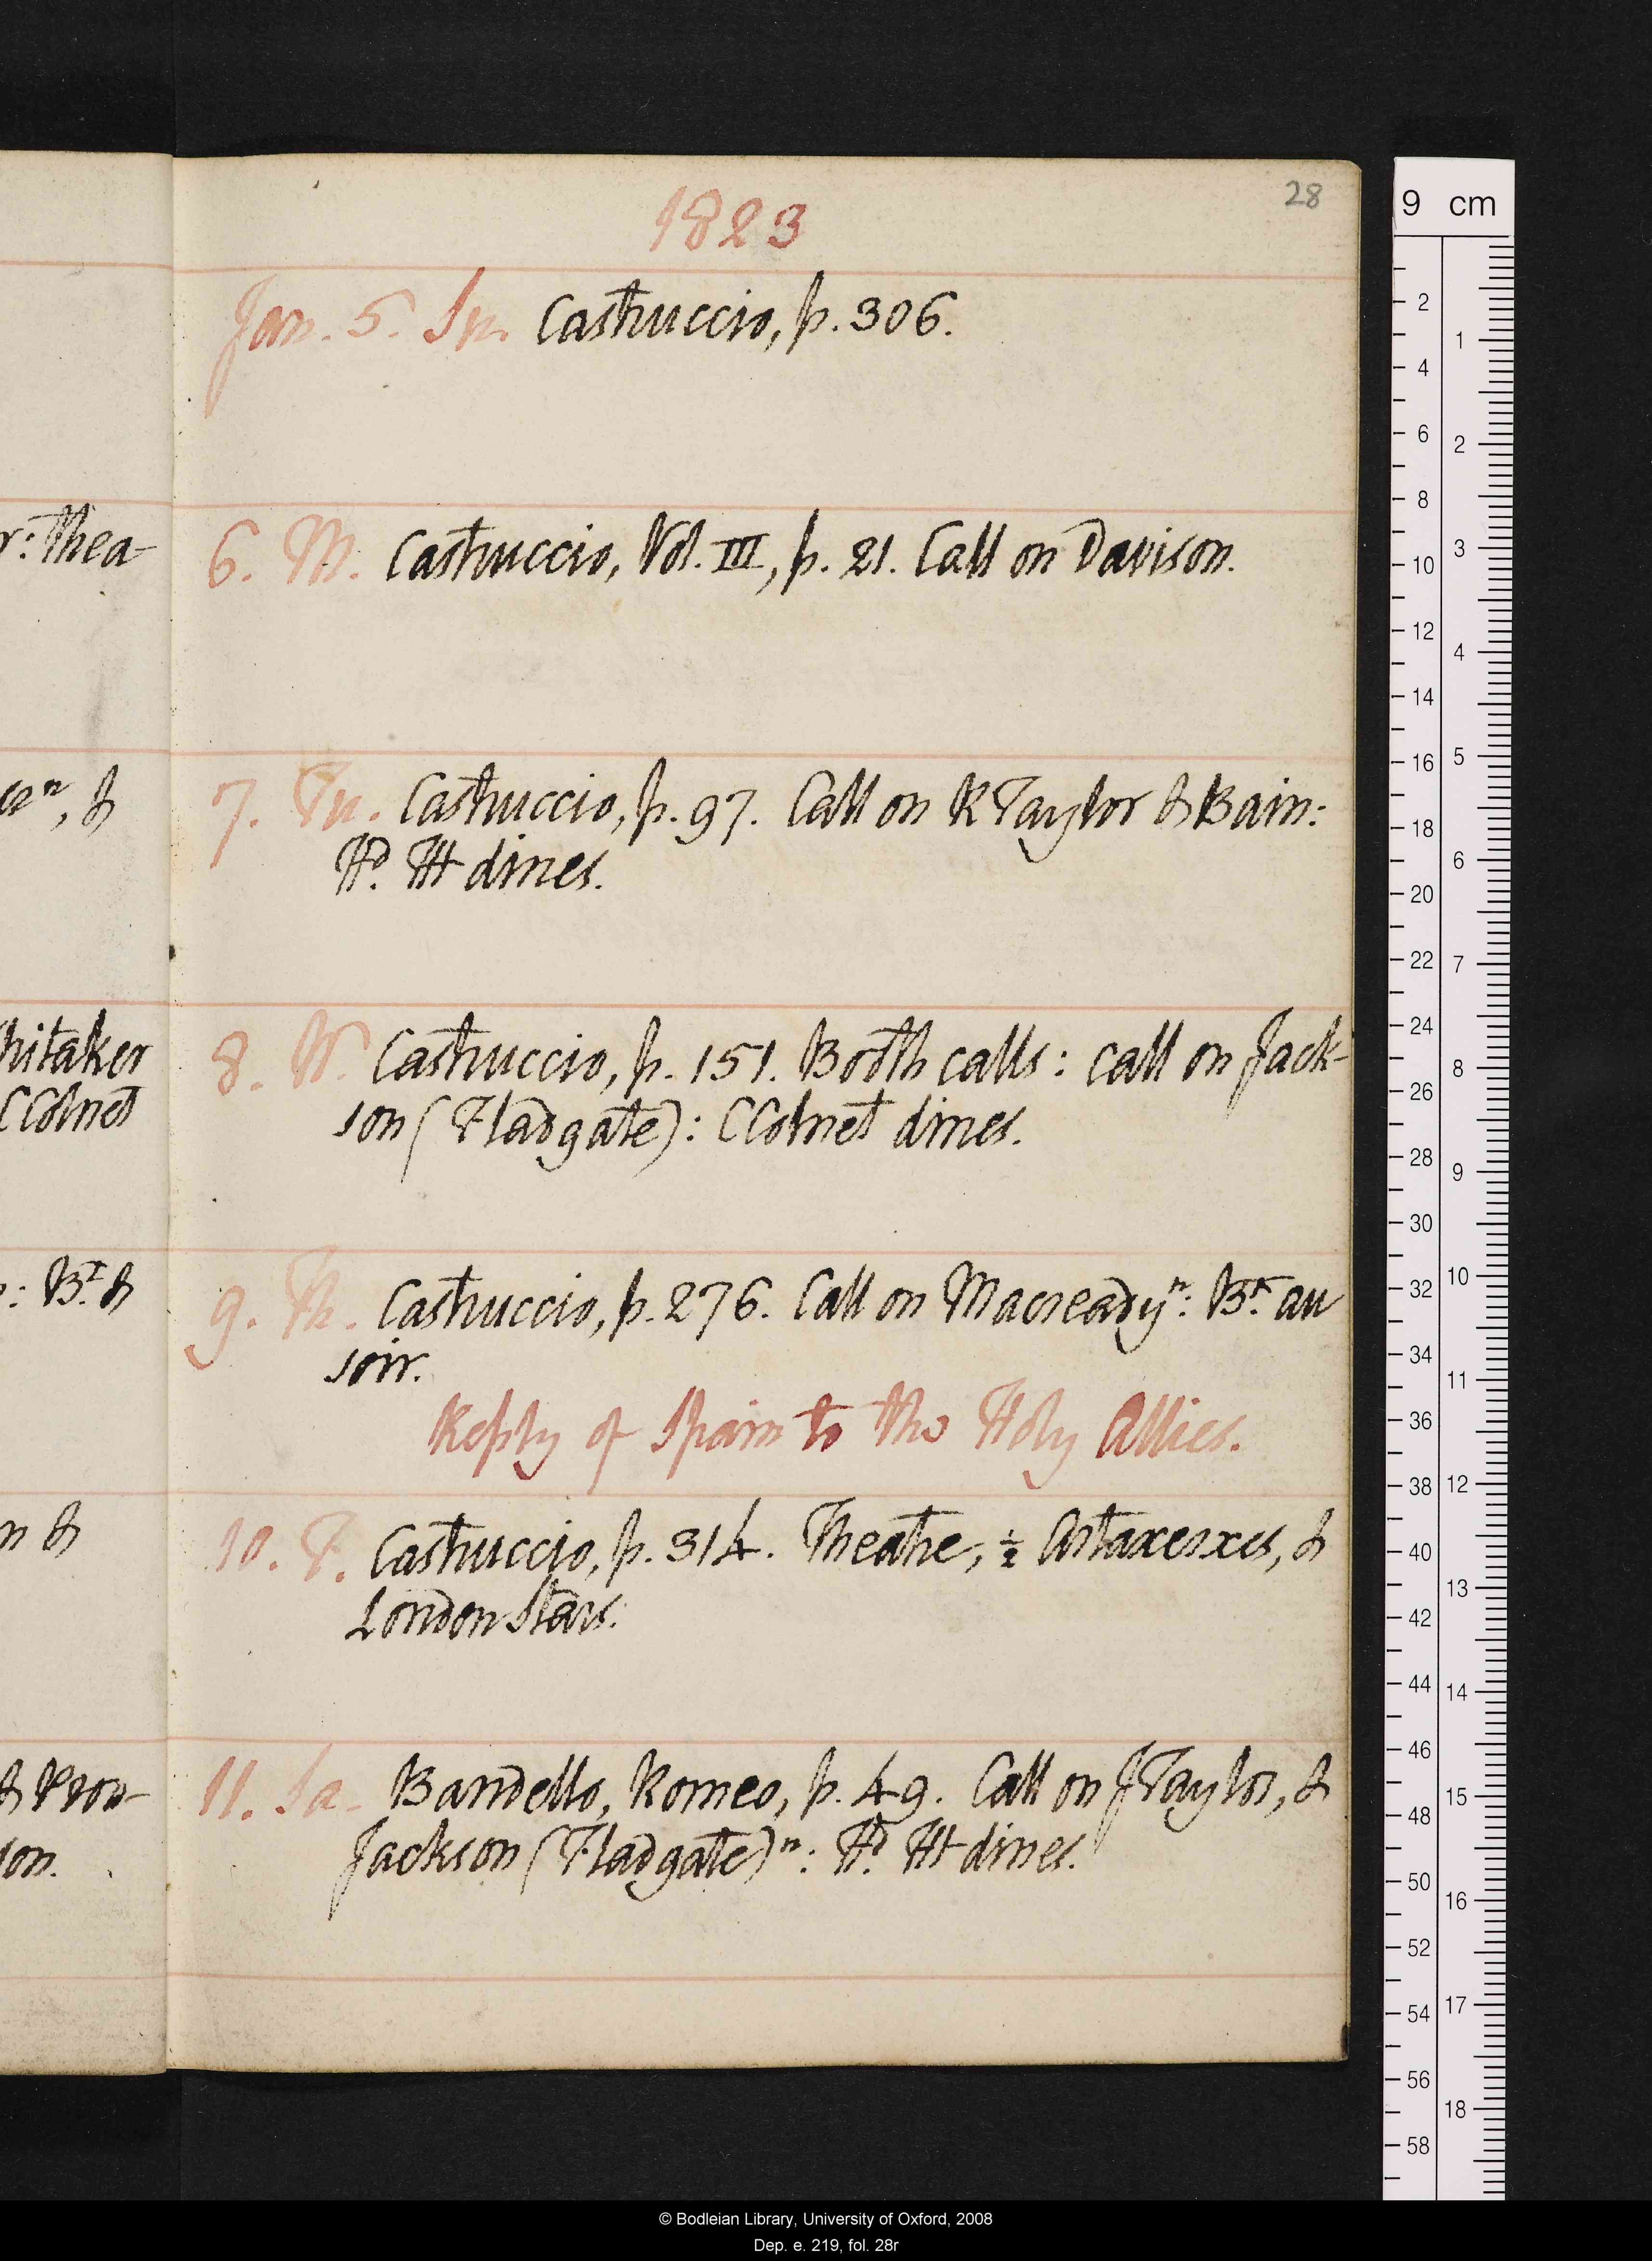 28
1823
Jan. 5. Su. Castruccio, p. 306.
r: Thea-
6. M. Castruccio, Vol. III, p. 21. Call on Davison.
ceⁿ, &
7. Tu. Castruccio, p. 97. Call on R Taylor & Bain:
Hᵈ. HH dines.
hitaker
CColnet
8. W. Castruccio, p. 151. Booth calls: call on Jack-
son (Fladgate): CColnet dines.
: Bᵗ. &
9. Th. Castruccio, p. 276. Call on Macreadyⁿ: Bᵗ. au
soir.
Reply of Spain to the Holy Allies.
n &
10. F. Castruccio, p. 314. Theatre, ½ Artaxerxes, &
London Stars.
& Prow-
son.
11. Sa. Bandello, Romeo, p. 49. Call on J Taylor, &
Jackson (Fladgate)ⁿ: Hᵈ. HH dines.
9 cm
2
4
6
8
10
12
14
16
18
20
22
24
26
28
30
32
34
36
38
40
42
44
46
48
50
52
54
56
58
1
2
3
4
5
6
7
8
9
10
11
12
13
14
15
16
17
18
© Bodleian Library, University of Oxford, 2008
Dep. e. 219, fol. 28r